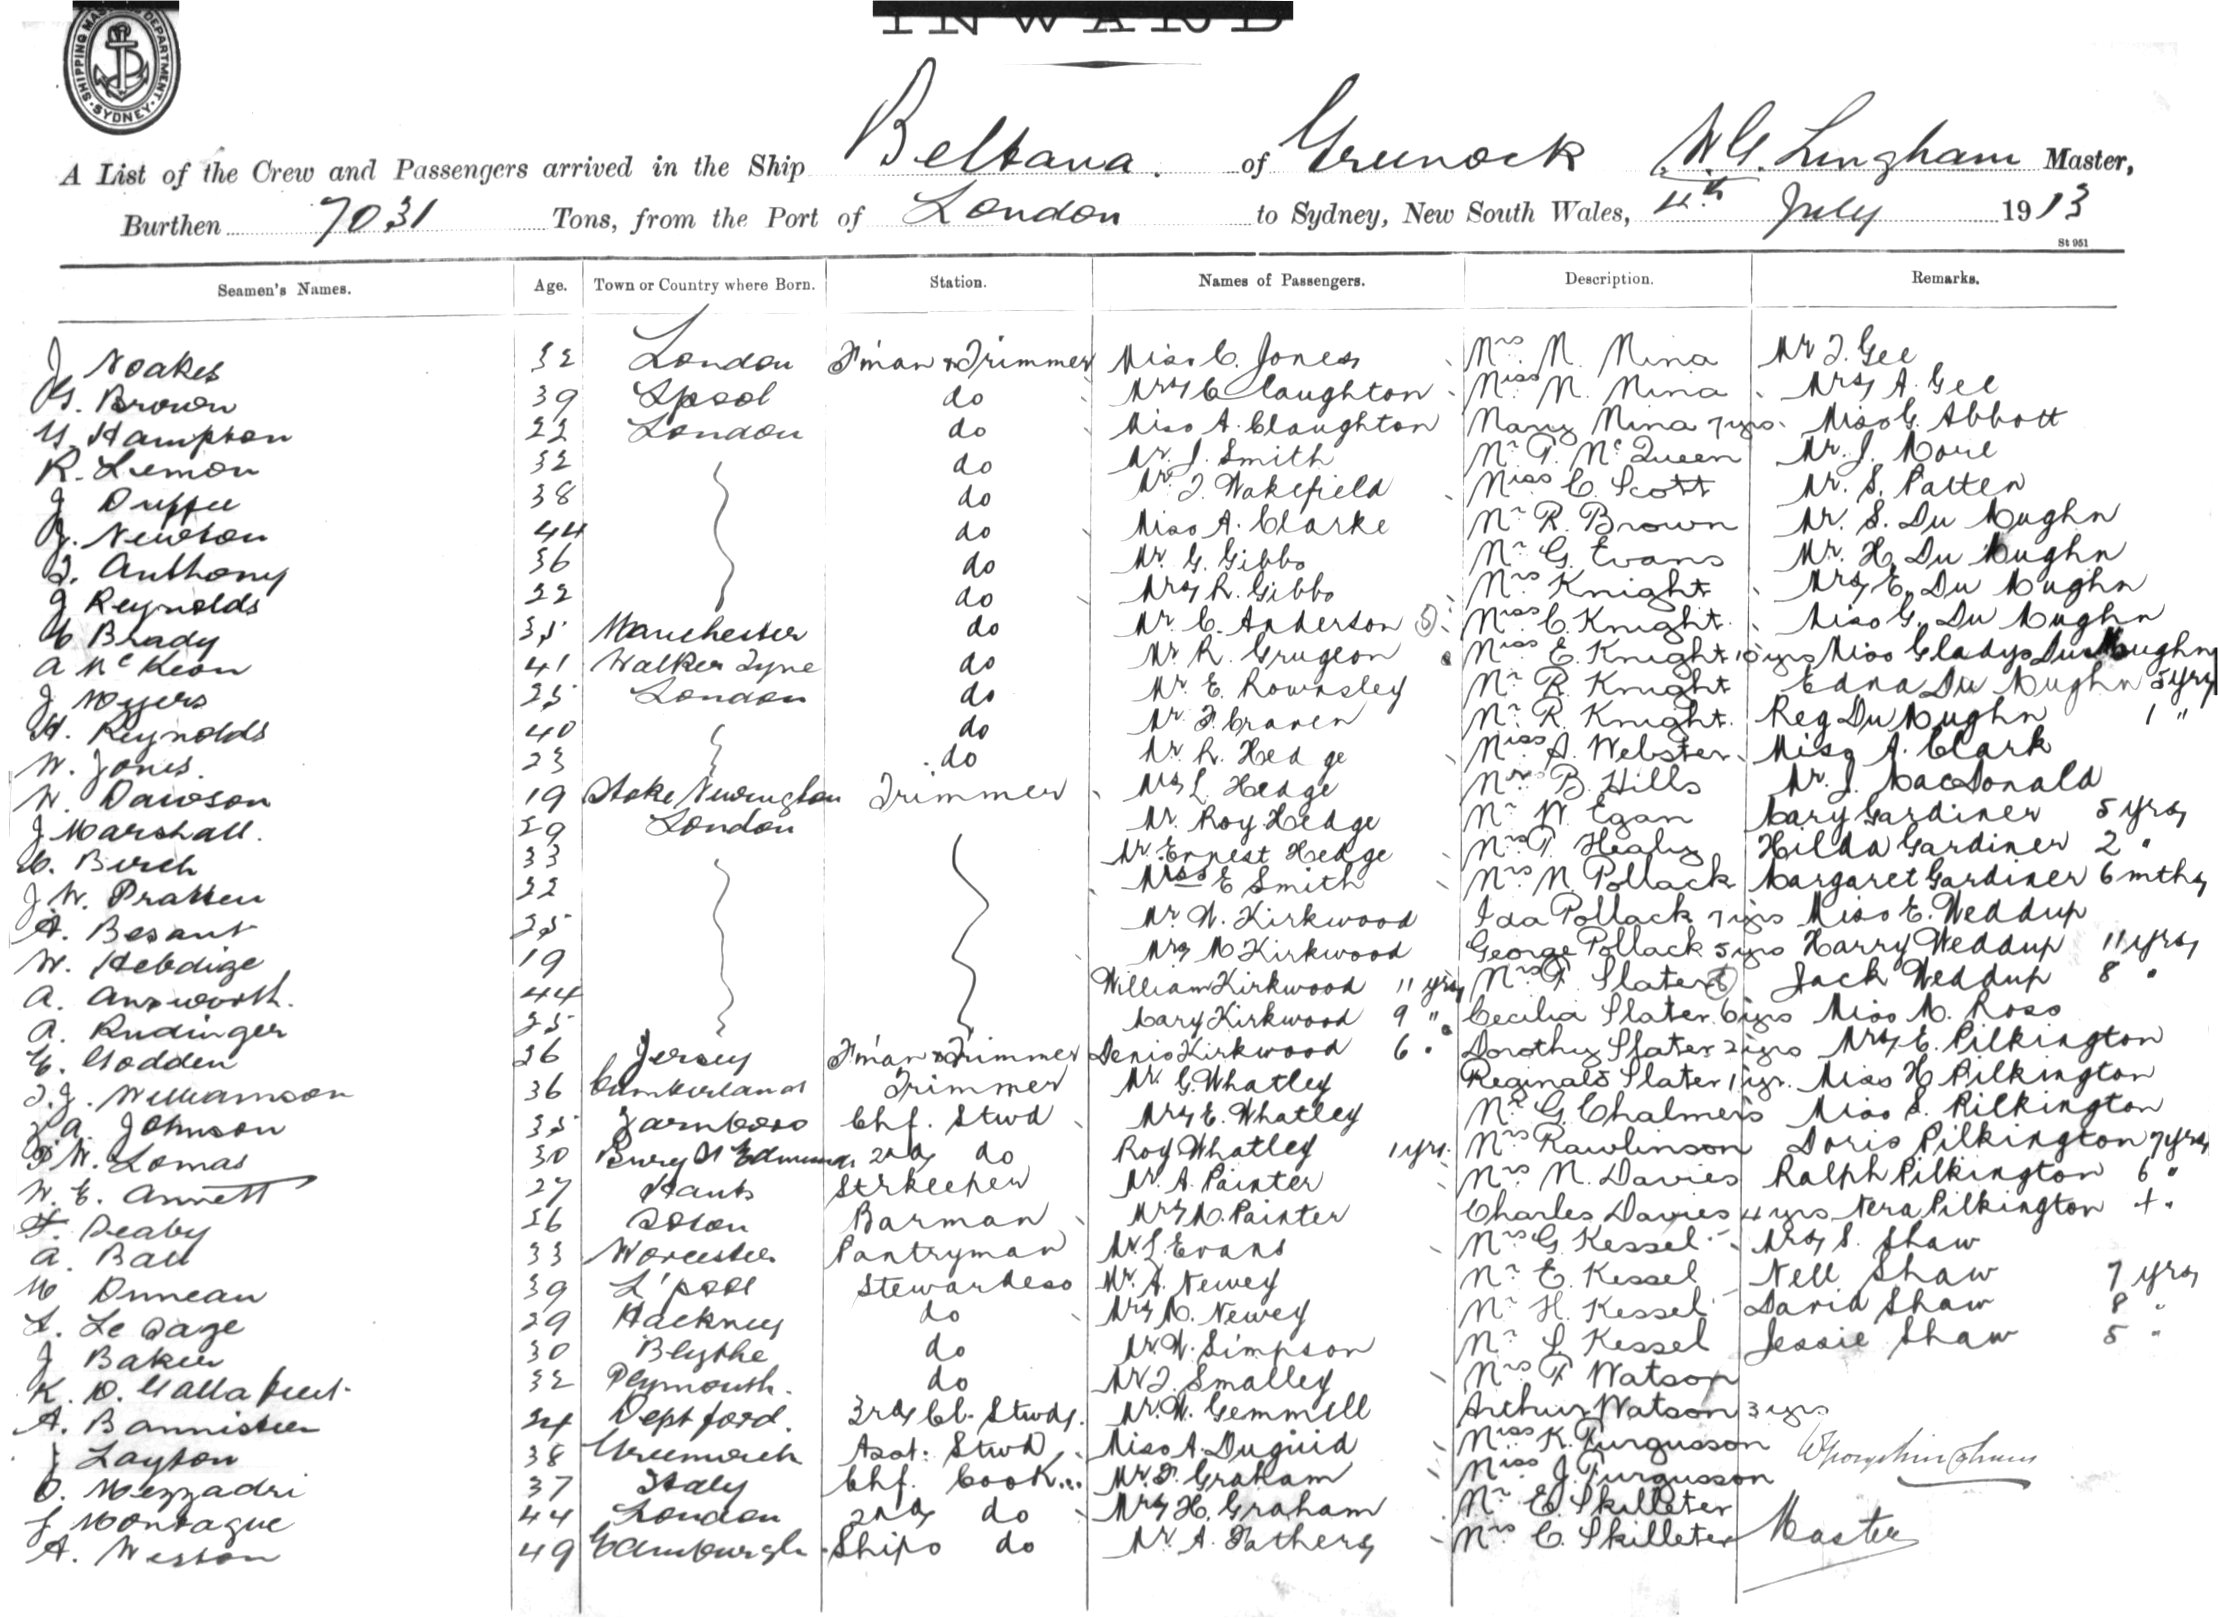 SHIPPING MASTER'S DEPARTMENT
SYDNEY
INWARD
A List of the Crew and Passengers arrived in the Ship Beltana. of Greenock W.G. Lingham Master,
Burthen 7031 Tons, from the Port of London to Sydney, New South Wales, 4th July 1913
St 951
Seamen's Names. Age. Town or Country where Born. Station. Names of Passengers. Description. Remarks.
J Noakes 32 London F'man & Trimmer Miss C. Jones Mrs. N. Nina Mr J. Gee
G. Brown 39 Lpool do Mrs C Claughton Miss N. Nina Mrs A. Gee
Hampton 22 London do Miss A. Claughton Mary Nina 7 yrs. Miss G. Abbott
R. Lemon 32 do Mr. J. Smith Mr T. McQueen Mr. J. More
J Duffee 38 do Mr. J. Wakefield Miss C. Scott Mr. S. Patten
J. Newson 44 do Miss A. Clarke Mr R. Brown Mr. S. Du Maughn
J. Anthony 36 do Mr. G. Gibbs Mr G. Evans Mr. H. Du Maughn
J Reynolds 22 do Mrs R. Gibbs Mrs Knight Mrs E. Du Maughn
C Brady 35 Manchester do Mr. C. Anderson Miss C. Knight Miss G. Du Maughn
A McKeon 41 Walker Tyne do Mr R. Grugeon Miss E. Knight 10 yrs Miss Gladys Du Maughn
J Myers 25 London do Mr. E. Rownsley Mr R. Knight Edna Du Maughn 5 yrs
H. Reynolds 40 do Mr F. Craven Mr. R. Knight. Reg Du Maughn 1 "
W. Jones. 23 do Mr. R. Hedge Miss A. Webster Miss A. Clark
W. Dawson 19 Stoke Newington Trimmer Mrs L. Hedge Mr B. Hills Mr. J. MacDonald
J Marshall. 29 London Mr. Roy Hedge Mr W. Egan Mary Gardiner 5 yrs
C. Birch 33 Mr. Ernest Hedge Mrs T. Healy Hilda Gardiner 2 "
J.W. Pratten 22 Miss E Smith Mrs N. Pollack Margaret Gardiner 6 mths
A. Besant 25 Mr. W. Kirkwood Ida Pollack 7 yrs Miss E. Weddup
W. Hebdige 19 Mrs M Kirkwood George Pollack 5 yrs Harry Weddup 11 yrs
A. Answorth. 44 William Kirkwood 11 yrs Mrs F Slater Jack Weddup 8 "
A. Rudinger 25 Mary Kirkwood 9 " Cecilia Slater 6 yrs Miss M. Ross
E. Godden 26 Jersey F'man & Trimmer Denis Kirkwood 6 " Dorothy Slater 2 yrs Mrs E. Pilkington
J.J. Williamson 36 Cumberland Trimmer Mr. G. Whatley Reginald Slater 1 yr. Miss H Pilkington
A. Johnson 35 Farnboro Chf. Stwd Mrs E. Whatley Mr G. Chalmers Miss S. Pilkington
W. Lomas 30 Bury St Edmunds 2nd do Roy Whatley 1 yr. Mrs Rawlinson Doris Pilkington 7 yrs
W. E. Annett 27 Hants Strkeeper Mr. A. Painter Mrs N. Davies Ralph Pilkington 6 "
F. Deaby 26 Barman Mrs M. Painter Charles Davies 4 yrs Nera Pilkington 4 "
A. Ball 33 Worcester Pantryman Mr. L. Evans Mrs G. Kessel Mrs S. Shaw
M Duncan 39 L'pool Stewardess Mr. A. Newey Mr E. Kessel Nell Shaw 7 yrs
L. Le Page 29 Hackney do Mrs M. Newey Mr H. Kessel David Shaw 8 "
J Baker 30 Blythe do Mr. W. Simpson Mr L Kessel Jessie Shaw 5 "
K. D. 32 Plymouth. do Mr J. Smalley Mrs F Watson
A. Bannister 24 Deptford. 3rd Cl. Stwds. Mr. W. Gemmell Arthur Watson 3 yrs
J Layton 38 Greenwich Asst: Stwd Miss A. Duguid Miss K. Furgusson
D. Mezzadri 37 Italy Chf. Cook Mr. F. Graham Miss J. Furgusson
J Montague 44 London 2nd do Mrs H. Graham Mr E. Skilleter
A. Weston 49 Ships do Mr. A. Fathers Mrs C. Skilleter Master